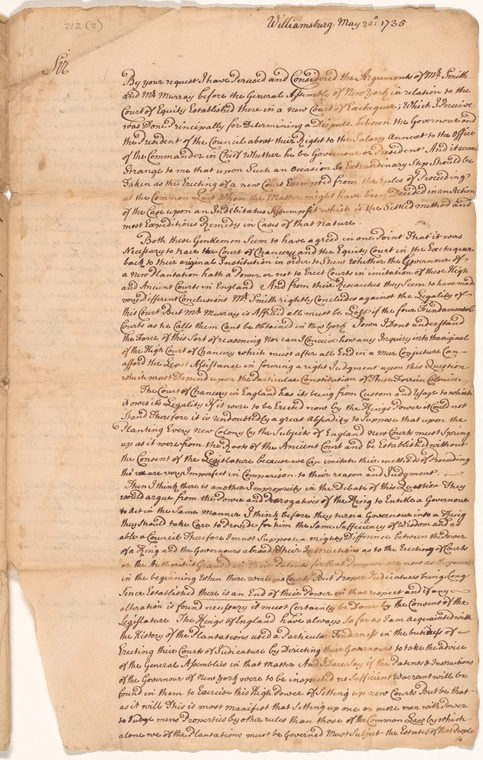 212 (2)
Williamsburg May 20: 1735
Sir
By your request I have Perused and Considered the Arguments of Mr. Smith
and Mr. Murray before the General Assembly of New York in relation to the
Court of Equity Established there in a new Court of Exchequer; Which I Perceive
was Done Principally for Determining a Dispute between the Governour and
the President of the Council about their Right to the Salary Annext to the Office
of the Commander in Cheif Whether he be Governour or President And it seems
Strange to me that upon Such an Occasion So Extraordinary Step should be
Taken as the Erecting of a new Court Exempted from the rules of Proceeding
at the Common Law When the Matter might have been Decided in an Action
of the Case upon an Indebitatus Assumpsit which is the Settled method and
most Expeditious Remedy in Cases of that Nature
Both these Gentlemen Seem to have agreed in one Point That it was
Necessary to trace the Court of Chancery and the Equity Court in the Exchequer
back to their original Institution in order to Shew whether the Governour of
a new Plantation hath a Power or not to Erect Courts in imitation of these High
and Ancient Courts in England And from their Researches they Seem to have made
very Different Conclusions Mr. Smith rightly Concludes against the Legality of
this Court But Mr. Murray is Affraid all must be Lost if the four Fundamental
Courts as he Calls them Cant be Obtained in New York I own I dont understand
the Force of this Sort of reasoning Nor can I Conceive how any Inquiry into the original
of the High Court of Chancery which must after all End in a meer Conjecture Can
afford the Least Assistance in forming a right Judgment upon this Question
which must Depend upon the Particular Constitution of These Foreign Colonies
The Court of Chancery in England has its being from Custom and Usage to which
it owes its Legality if it were to be Erected now by the Kings Power it Could not
Stand Therefore it is undoubtedly a great Absurdity to Suppose that upon the
Planting Every new Colony by the Subjects of England new Courts must Spring
up as it were from the Root of the Ancient Court and be Established without
the Consent of the Legislature because we Can imitate their methods of Proceeding
tho we are very Imperfect in Comparison to their reason and Judgment.
Then I think there is another Impropriety in the Debate of this Question They
would argue from the Power and Prerogatives of the King to Entitle a Governour
to Act in the Same Manner I think before they turn a Governour into a King
they should take Care to Provide for him the Same Sufficiency of Wisdom and as
able a Council Therefore I must Suppose a mighty Difference between the Power
of a King and the Governours abroad Their Instructions as to the Erecting of Courts
or the Authorities
in the beginning When there were no Courts But Proper Judicatures being long
Since Established there is an End of their Power in that respect and if any
alteration is found necessary it must Certainly be Done by the Consent of the
Legislature The Kings of England have always So far as I am acquainted with
the History of the Plantations used a Particular Tenderness in the business of
Erecting their Courts of Judicature by Directing their Governours to take the advice
of the General Assemblies in that matter And I Dare Say if the Patents & Instructions
of the Governour of New York were to be inspected no Sufficient Warrant will be
found in them to Exercise this High Power of Setting up new Courts But be that
as it will This is most manifest that Setting up one or more men with Power
to Judge mens Properties by other rules than those of the Common Law by which
alone we of the Plantations must be Governed Must Subject the Estates of that People